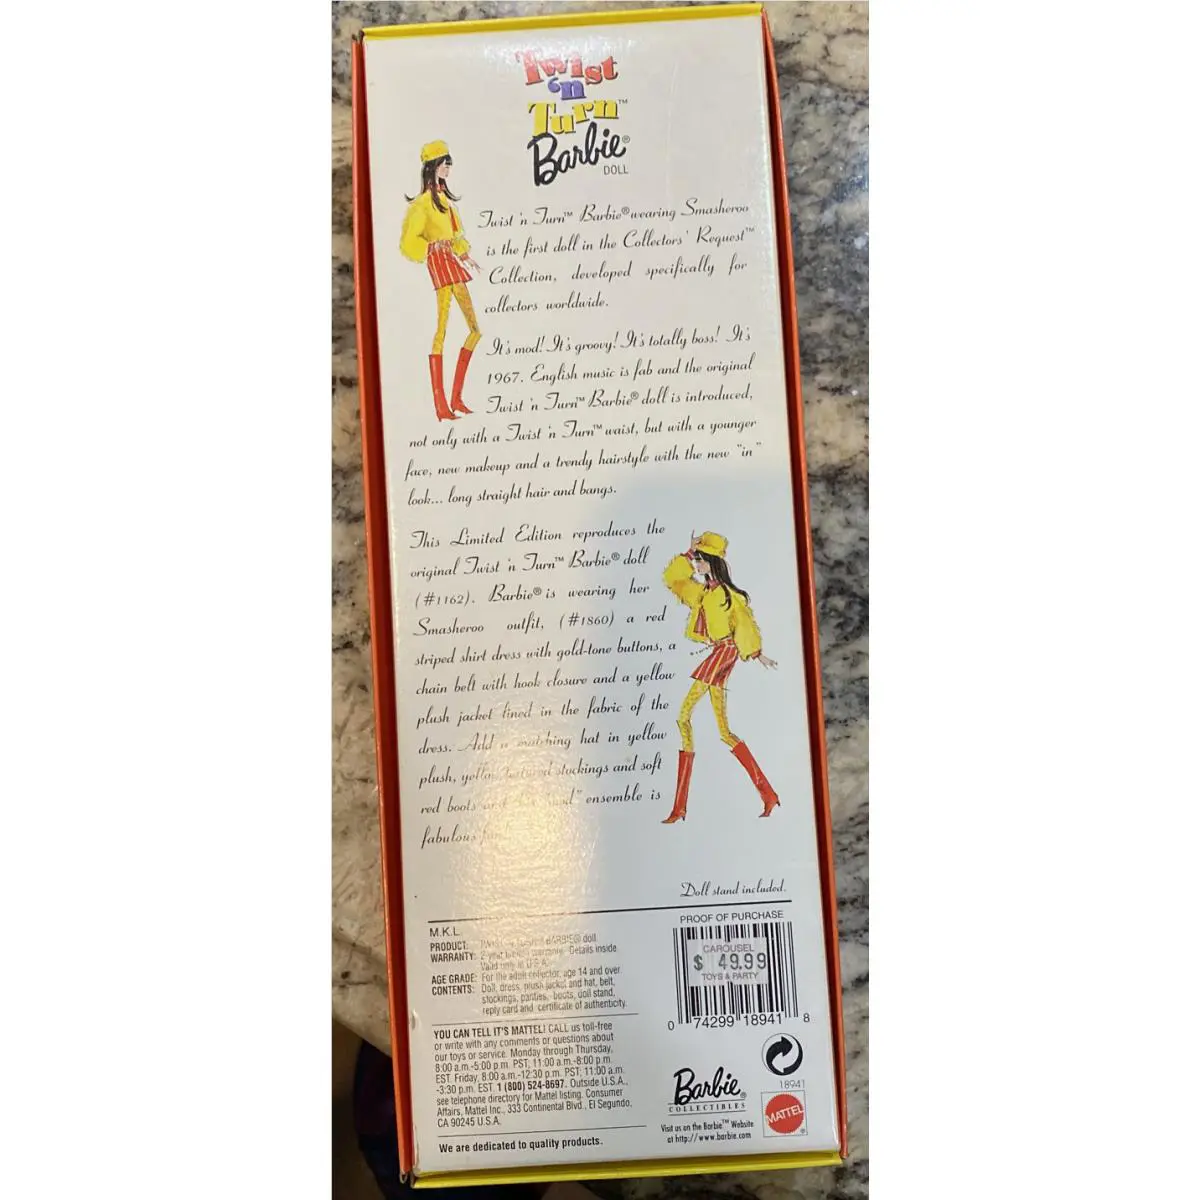 Twist
'n
Turn™
Barbie®
DOLL
Twist 'n Turn™ Barbie® wearing Smasheroo
is the first doll in the Collectors' Request™
Collection, developed specifically for
collectors worldwide.
It's mod! It's groovy! It's totally boss! It's
1967. English music is fab and the original
Twist 'n Turn™ Barbie® doll is introduced,
not only with a Twist 'n Turn™ waist, but with a younger
face, new makeup and a trendy hairstyle with the new "in"
look... long straight hair and bangs.
This Limited Edition reproduces the
original Twist 'n Turn™ Barbie® doll
(#1162). Barbie® is wearing her
Smasheroo outfit, (#1860) a red
striped shirt dress with gold-tone buttons, a
chain belt with hook closure and a yellow
plush jacket lined in the fabric of the
dress. Add a matching hat in yellow
plush, yellow textured stockings and soft
red boots and "mod" ensemble is
fabulous
Doll stand included.
M.K.L.
PRODUCT: BARBIE® doll
WARRANTY: 2-year limited warranty. Details inside.
Valid only in U.S.A.
AGE GRADE: For the adult collector, age 14 and over.
CONTENTS: Doll, dress, plush jacket and hat, belt,
stockings, panties, boots, doll stand,
reply card and certificate of authenticity.
YOU CAN TELL IT'S MATTEL! CALL us toll-free
or write with any comments or questions about
our toys or service. Monday through Thursday,
8:00 a.m.-5:00 p.m. PST; 11:00 a.m.-8:00 p.m.
EST. Friday, 8:00 a.m.-12:30 p.m. PST; 11:00 a.m.
-3:30 p.m. EST. 1 (800) 524-8697. Outside U.S.A.,
see telephone directory for Mattel listing. Consumer
Affairs, Mattel Inc., 333 Continental Blvd., El Segundo,
CA 90245 U.S.A.
We are dedicated to quality products.
PROOF OF PURCHASE
CAROUSEL
$ 49.99
TOYS & PARTY
0 74299 18941 8
18941
Barbie®
COLLECTIBLES
MATTEL
®
Visit us on the Barbie™ Website
at http://www.barbie.com